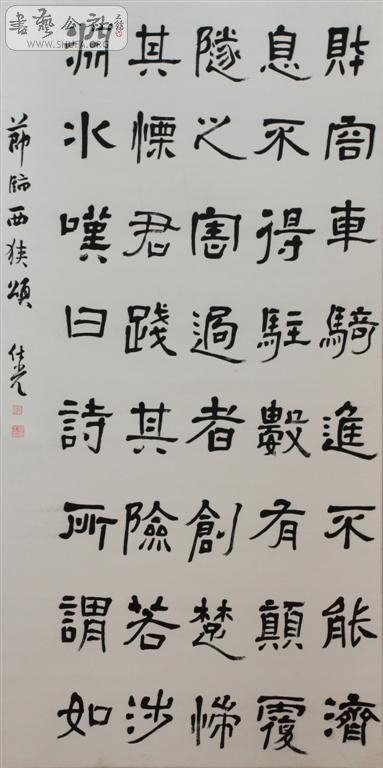 書藝公社
WWW.SHUFA.ORG
財容車騎進不能濟
息不得駐數有顛覆
隧之害過者創楚惴
其慄君踐其險若涉
淵水嘆曰詩所謂如
節臨西狹頌 仕光